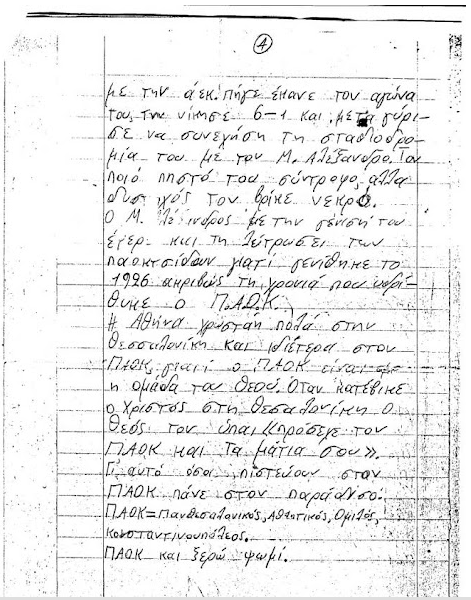 4
με την άεκ. πήγε έκανε τον αγώνα
του, την νίκησε 6-1 και μετά γύρι-
σε να συνεχήση τη σταδιοδρο-
μία του με τον Μ. Αλέξανδρο. Τον
ποιό πηστό του σύντροφο, αλλα
δυστιχός τον βρίκε νεκρό.
Ο Μ. Αλέξανδρος με την γένιση του
έφερ. και τη λύτρωσει των
παοκτσίδων γιατί γενίθηκε το
1926 ακριβώς τη χρονια που ιδρί-
θυκε ο Π.Α.Ο.Κ.
Η Αθήνα χρωστάη πολά στην
Θεσσαλονίκη και ιδιέτερα στον
ΠΑΟΚ, γιατί ο ΠΑΟΚ είναι
η ομάδα του Θεού. Όταν κατέβικε
ο Χριστός στη Θεσαλονίκη ο
Θεός του ύπαι «Πρόσεχε τον
ΠΑΟΚ και τα μάτια σου».
Γι' αυτό όσοι πιστεύουν σταν
ΠΑΟΚ πάνε στον παράδισο.
ΠΑΟΚ = Πανθεσαλονικός, Αθλητικός, Ομιλός,
Κονσταντινουπόλεος.
ΠΑΟΚ και ξερώ ψωμί.